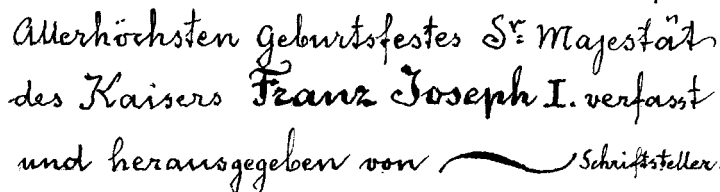 Allerhöchsten Geburtsfestes Sr. Majestät
des Kaisers Franz Joseph I. verfasst
und herausgegeben von Schriftsteller